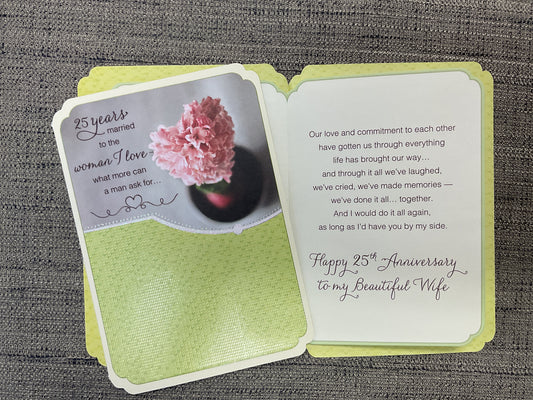 25 years,
married
to the
woman I love –
what more can
a man ask for...
Our love and commitment to each other
have gotten us through everything
life has brought our way...
and through it all we've laughed,
we've cried, we've made memories —
we've done it all... together.
And I would do it all again,
as long as I'd have you by my side.
Happy 25th Anniversary
to my Beautiful Wife